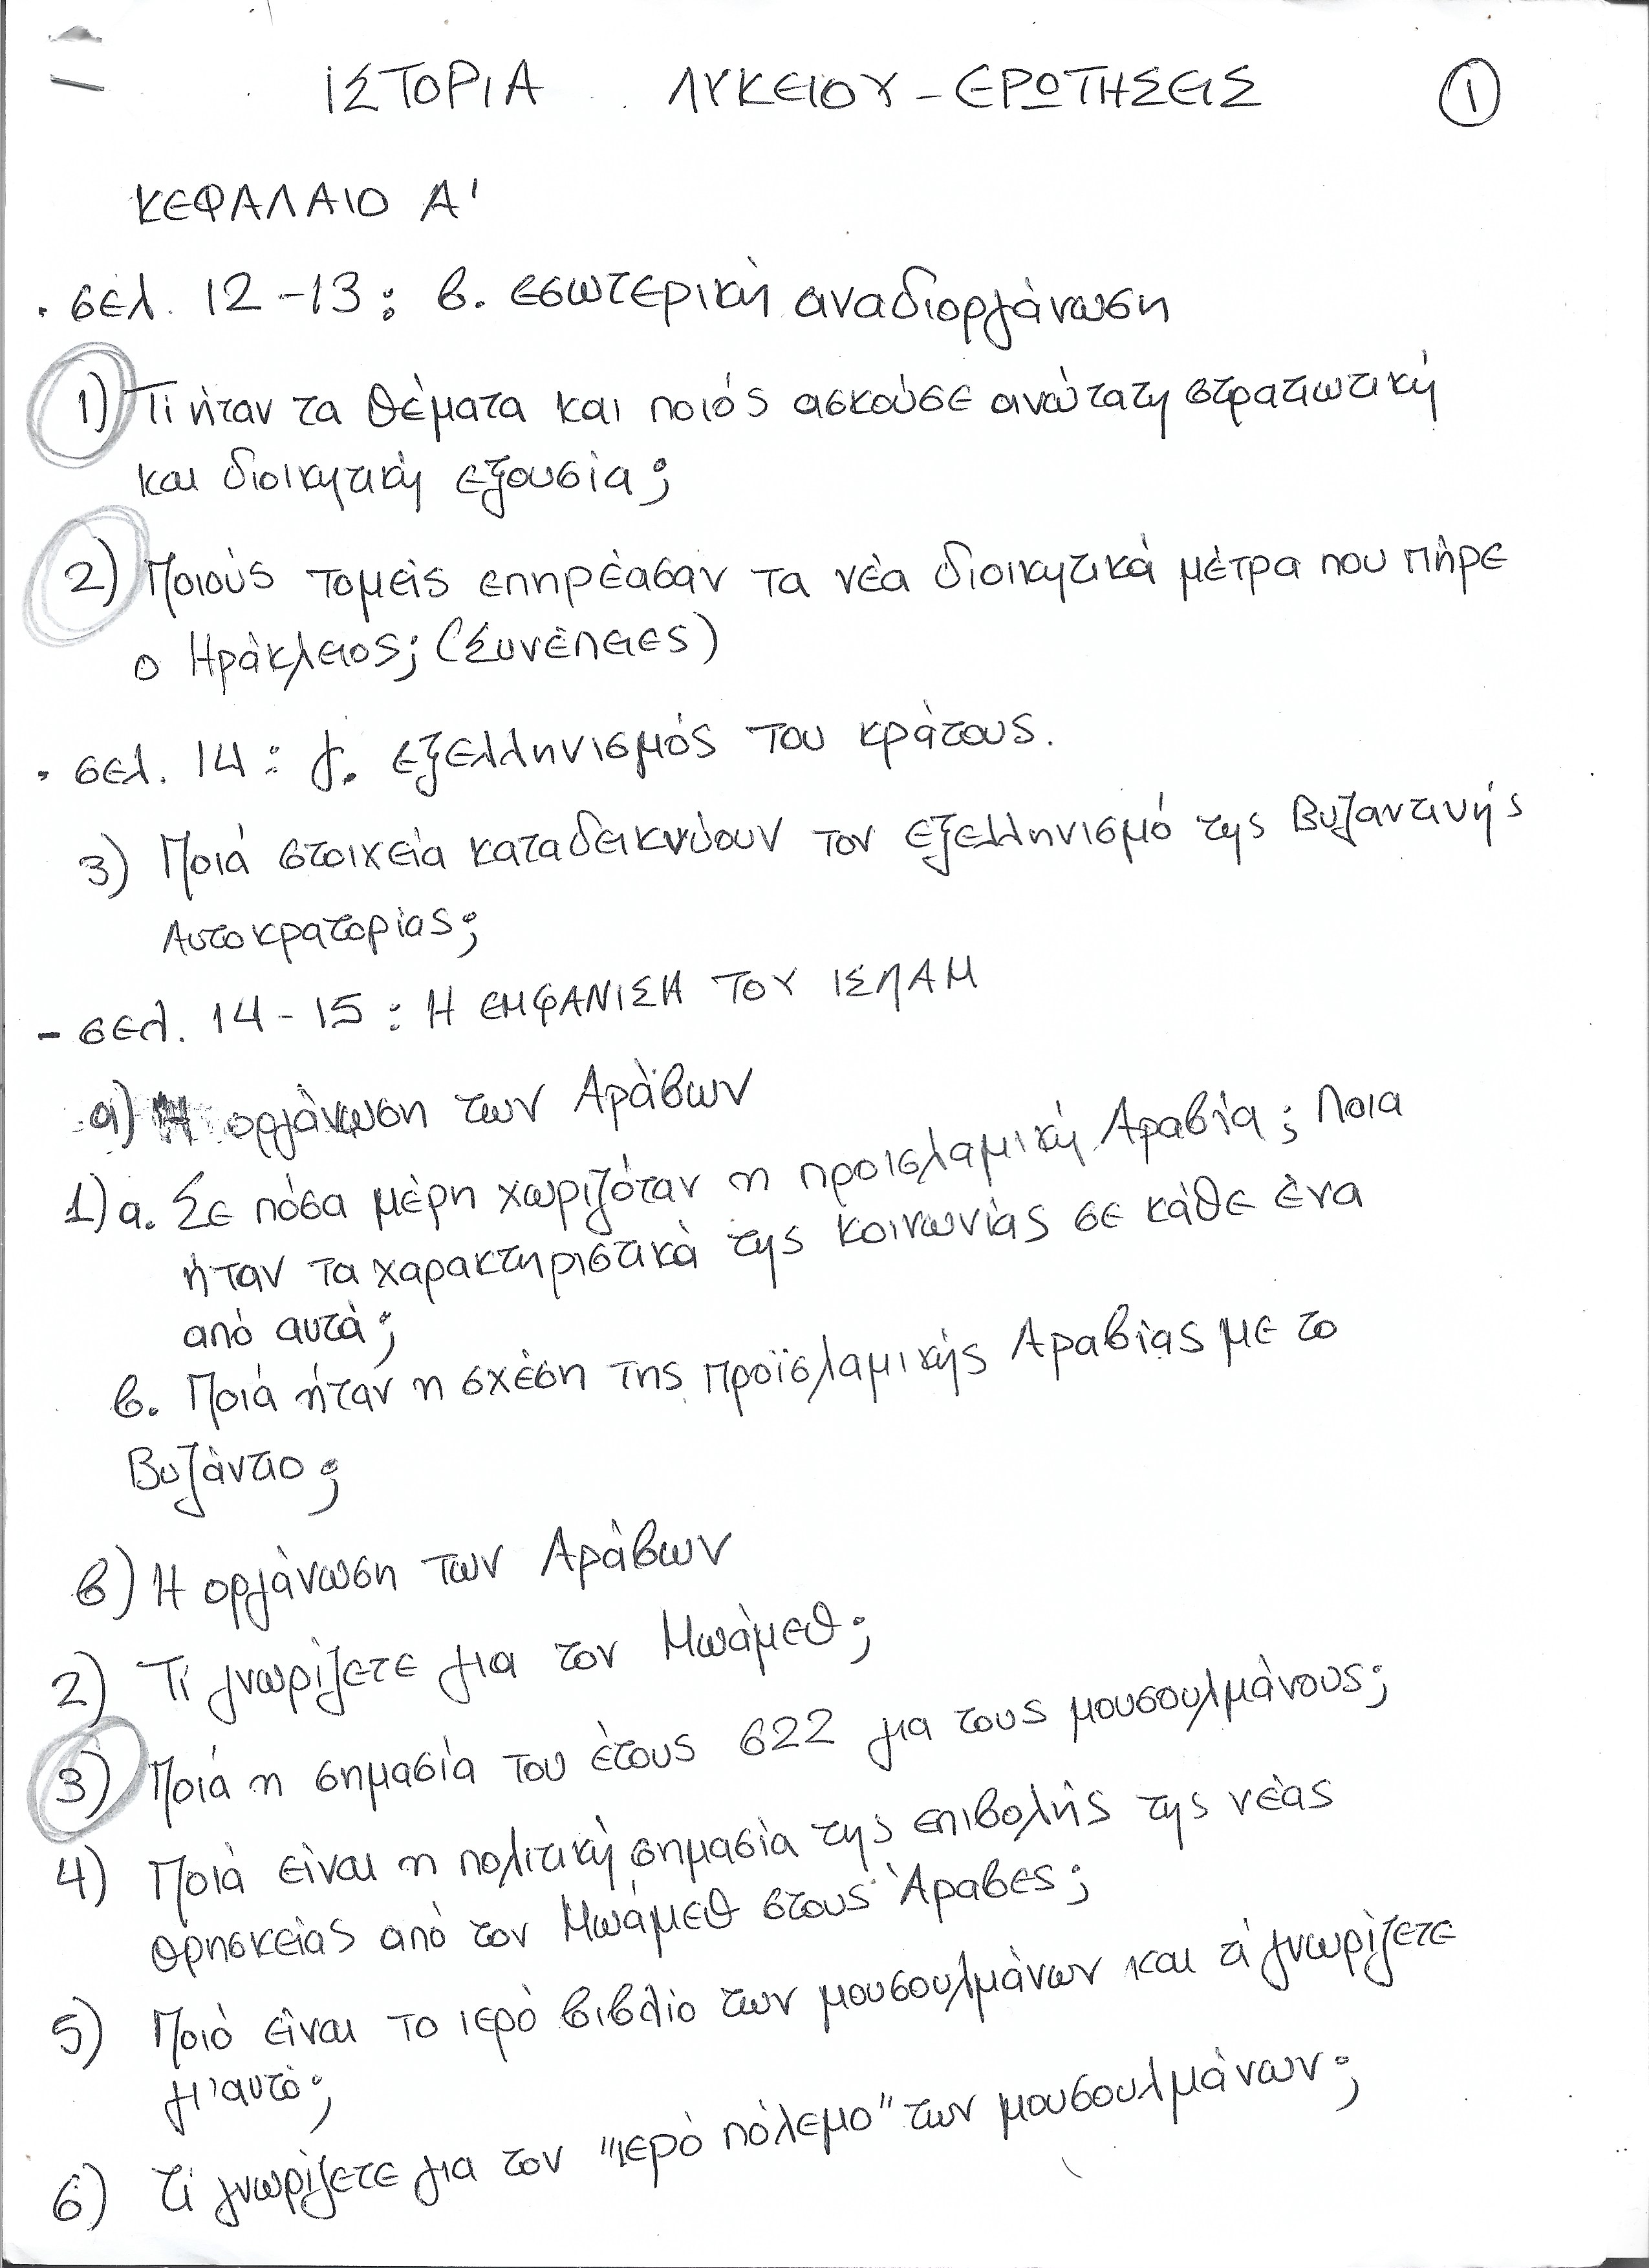 ΙΣΤΟΡΙΑ ΛΥΚΕΙΟΥ - ΕΡΩΤΗΣΕΙΣ ①
ΚΕΦΑΛΑΙΟ Α'
· σελ. 12-13: β. εσωτερική αναδιοργάνωση
1) Τι ήταν τα θέματα και ποιός ασκούσε ανώτατη στρατιωτική
και διοικητική εξουσία;
2) Ποιούς τομείς επηρέασαν τα νέα διοικητικά μέτρα που πήρε
ο Ηράκλειος; (Συνέπειες)
· σελ. 14: γ. εξελληνισμός του κράτους.
3) Ποιά στοιχεία καταδεικνύουν τον εξελληνισμό της Βυζαντινής
Αυτοκρατορίας;
- σελ. 14-15: Η ΕΜΦΑΝΙΣΗ ΤΟΥ ΙΣΛΑΜ
α) Η οργάνωση των Αράβων
1) α. Σε πόσα μέρη χωριζόταν η προισλαμική Αραβία; Ποια
ήταν τα χαρακτηριστικά της κοινωνίας σε κάθε ένα
από αυτά;
β. Ποιά ήταν η σχέση της προϊσλαμικής Αραβίας με το
Βυζάντιο;
β) Η οργάνωση των Αράβων
2) Τι γνωρίζετε για τον Μωάμεθ;
3) Ποιά η σημασία του έτους 622 για τους μουσουλμάνους;
4) Ποιά είναι η πολιτική σημασία της επιβολής της νέας
θρησκείας από τον Μωάμεθ στους Άραβες;
5) Ποιό είναι το ιερό βιβλίο των μουσουλμάνων και τί γνωρίζετε
γι'αυτό;
6) Τί γνωρίζετε για τον "ιερό πόλεμο" των μουσουλμάνων;